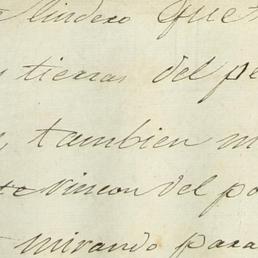 lindero que
tierras del pe
tambien m
Rincon del po
mirando para